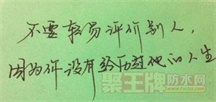 不要轻易评价别人，
因为你没有经历过他的人生
聚王牌防水网